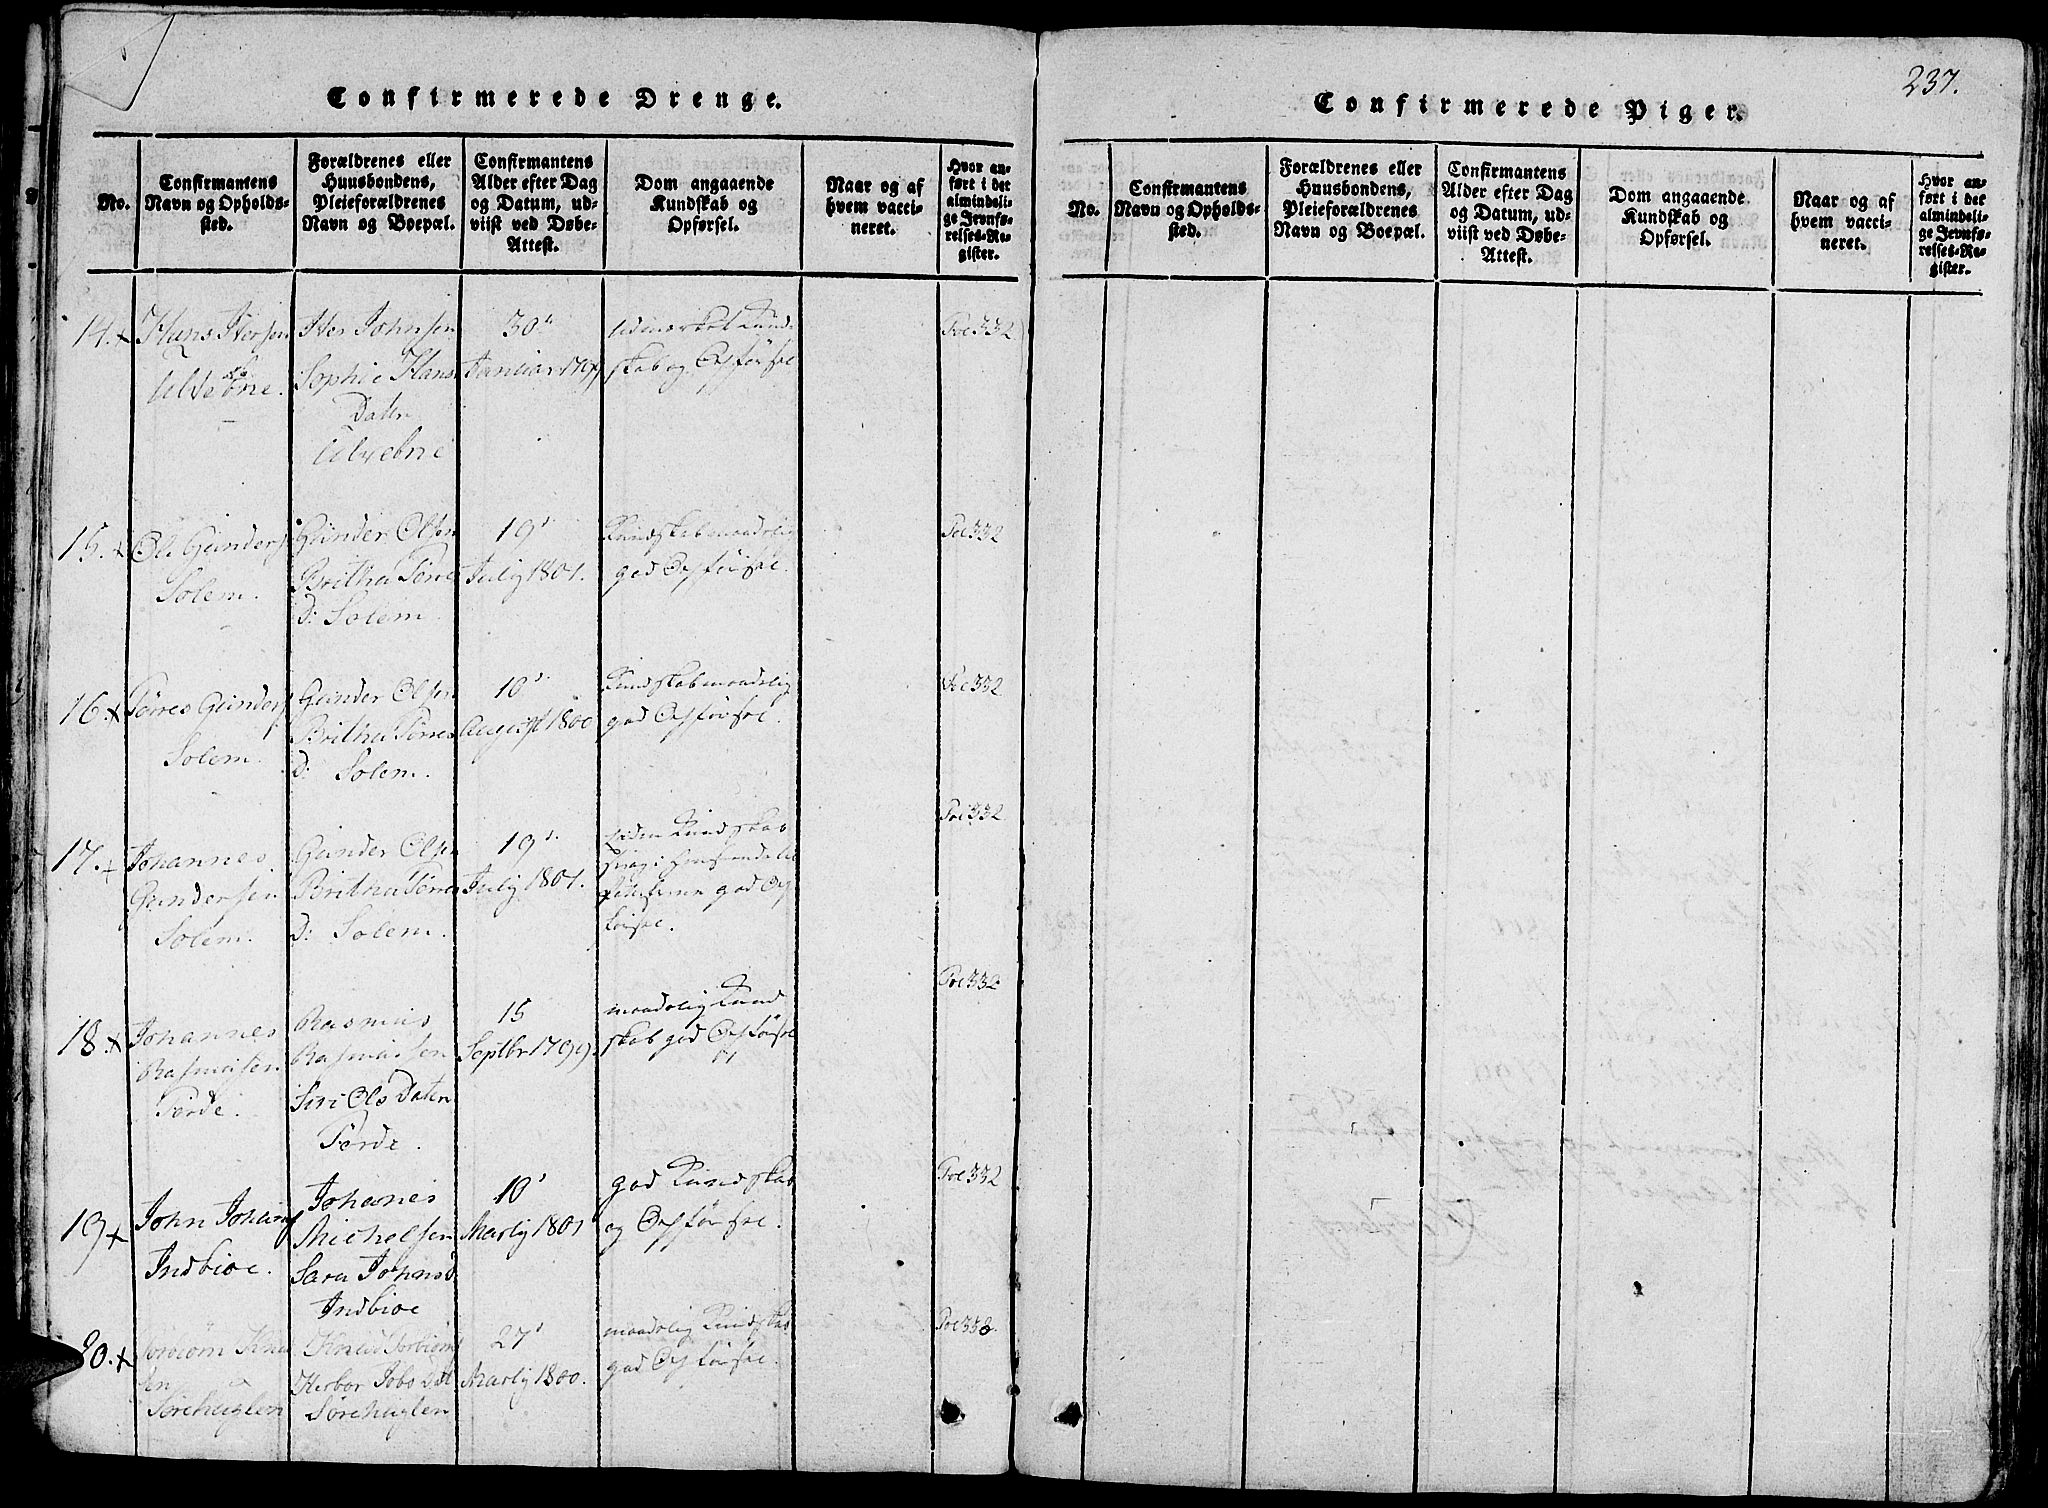 237.
Confirmerede Drenge.
No.
Confirmantens
Navn og Opholds-
sted.
Forældrenes eller
Huusbondens,
Pleieforældrenes
Navn og Boepæl.
Confirmantens
Alder efter Dag
og Datum, ud-
viist ved Døbe-
Attest.
Dom angaaende
Kundskab og
Opførsel.
Naar og af
hvem vacci-
neret.
Hvor an-
ført i det
almindeli-
ge Jevnfø-
relses-Re-
gister.
14.
Hans Itersen
Ulvebne.
Iter Johnsen
Sophie Hans
Daten
Ulvebne
30
Januar
Kund-
skab og Opførsel
Fol 332
15.
Ole Gunders
Solem.
Gunder Olsen
Britha Törre
D: Solem.
19
July 1801.
Kundskab maadelig
god Opførsel.
Fol 332
16.
Törres Gunders
Solem.
Gunder Olsen
Britha Törres
D: Solem.
10
August 1800
Kundskab maadelig
god Opførsel.
Fol 332
17.
Johannes
Gundersen
Solem.
Gunder Olsen
Britha Törres
D: Solem.
19
July 1801.
liden Kundskab
god Op
førsel.
Fol 332
18.
Johannes
Rasmussen
Förde.
Rasmus
Rasmussen
Siri Ols Daten
Förde.
15
Septbr 1799.
maadelig Kund
skab god Opførsel
Fol 332
19
John Johans
Indbioe.
Johanes
Michelsen
Sara Johnsd
Indbioe
10
Marty 1801
god Kundskab
og Opførsel.
Fol 332
20.
Torbiörn Knu
sen
Sörehuglen
Knud Torbiörns
Herbor Jobs Dat
Sörehuglen
27
Marty 1800.
maadelig Kundskab
god Opførsel.
Fol 332
Confirmerede Piger.
No.
Confirmantens
Navn og Opholds-
sted.
Forældrenes eller
Huusbondens,
Pleieforældrenes
Navn og Boepæl.
Confirmantens
Alder efter Dag
og Datum, ud-
viist ved Døbe-
Attest.
Dom angaaende
Kundskab og
Opførsel.
Naar og af
hvem vacci-
neret.
Hvor an-
ført i det
almindeli-
ge Jevnfø-
relses-Re-
gister.